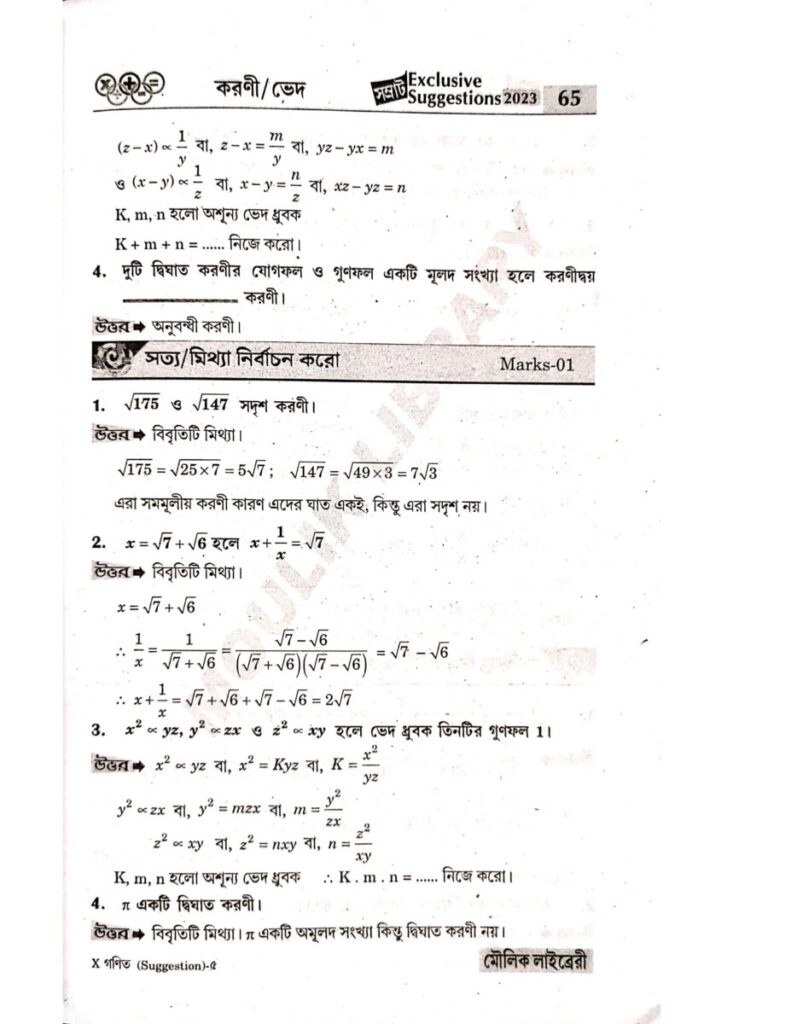 করণী/ভেদ
সম্রাট Exclusive Suggestions 2023 65
(z – x) ∝ 1/y বা, z – x = m/y বা, yz – yx = m
ও (x – y) ∝ 1/z বা, x – y = n/z বা, xz – yz = n
K, m, n হলো অশূন্য ভেদ ধ্রুবক
K + m + n = ...... নিজে করো।
4. দুটি দ্বিঘাত করণীর যোগফল ও গুণফল একটি মূলদ সংখ্যা হলে করণীদ্বয়
____________ করণী।
উত্তর ➡ অনুবন্ধী করণী।
সত্য/মিথ্যা নির্বাচন করো Marks-01
1. √175 ও √147 সদৃশ করণী।
উত্তর ➡ বিবৃতিটি মিথ্যা।
√175 = √(25×7) = 5√7 ; √147 = √(49×3) = 7√3
এরা সমমূলীয় করণী কারণ এদের ঘাত একই, কিন্তু এরা সদৃশ নয়।
2. x = √7 + √6 হলে x + 1/x = √7
উত্তর ➡ বিবৃতিটি মিথ্যা।
x = √7 + √6
∴ 1/x = 1/(√7 + √6) = (√7 – √6)/((√7 + √6)(√7 – √6)) = √7 – √6
∴ x + 1/x = √7 + √6 + √7 – √6 = 2√7
3. x² ∝ yz, y² ∝ zx ও z² ∝ xy হলে ভেদ ধ্রুবক তিনটির গুণফল 1।
উত্তর ➡ x² ∝ yz বা, x² = Kyz বা, K = x²/yz
y² ∝ zx বা, y² = mzx বা, m = y²/zx
z² ∝ xy বা, z² = nxy বা, n = z²/xy
K, m, n হলো অশূন্য ভেদ ধ্রুবক ∴ K . m . n = ...... নিজে করো।
4. π একটি দ্বিঘাত করণী।
উত্তর ➡ বিবৃতিটি মিথ্যা। π একটি অমূলদ সংখ্যা কিন্তু দ্বিঘাত করণী নয়।
X গণিত (Suggestion)-৫ মৌলিক লাইব্রেরী
MOULIK LIBRARY